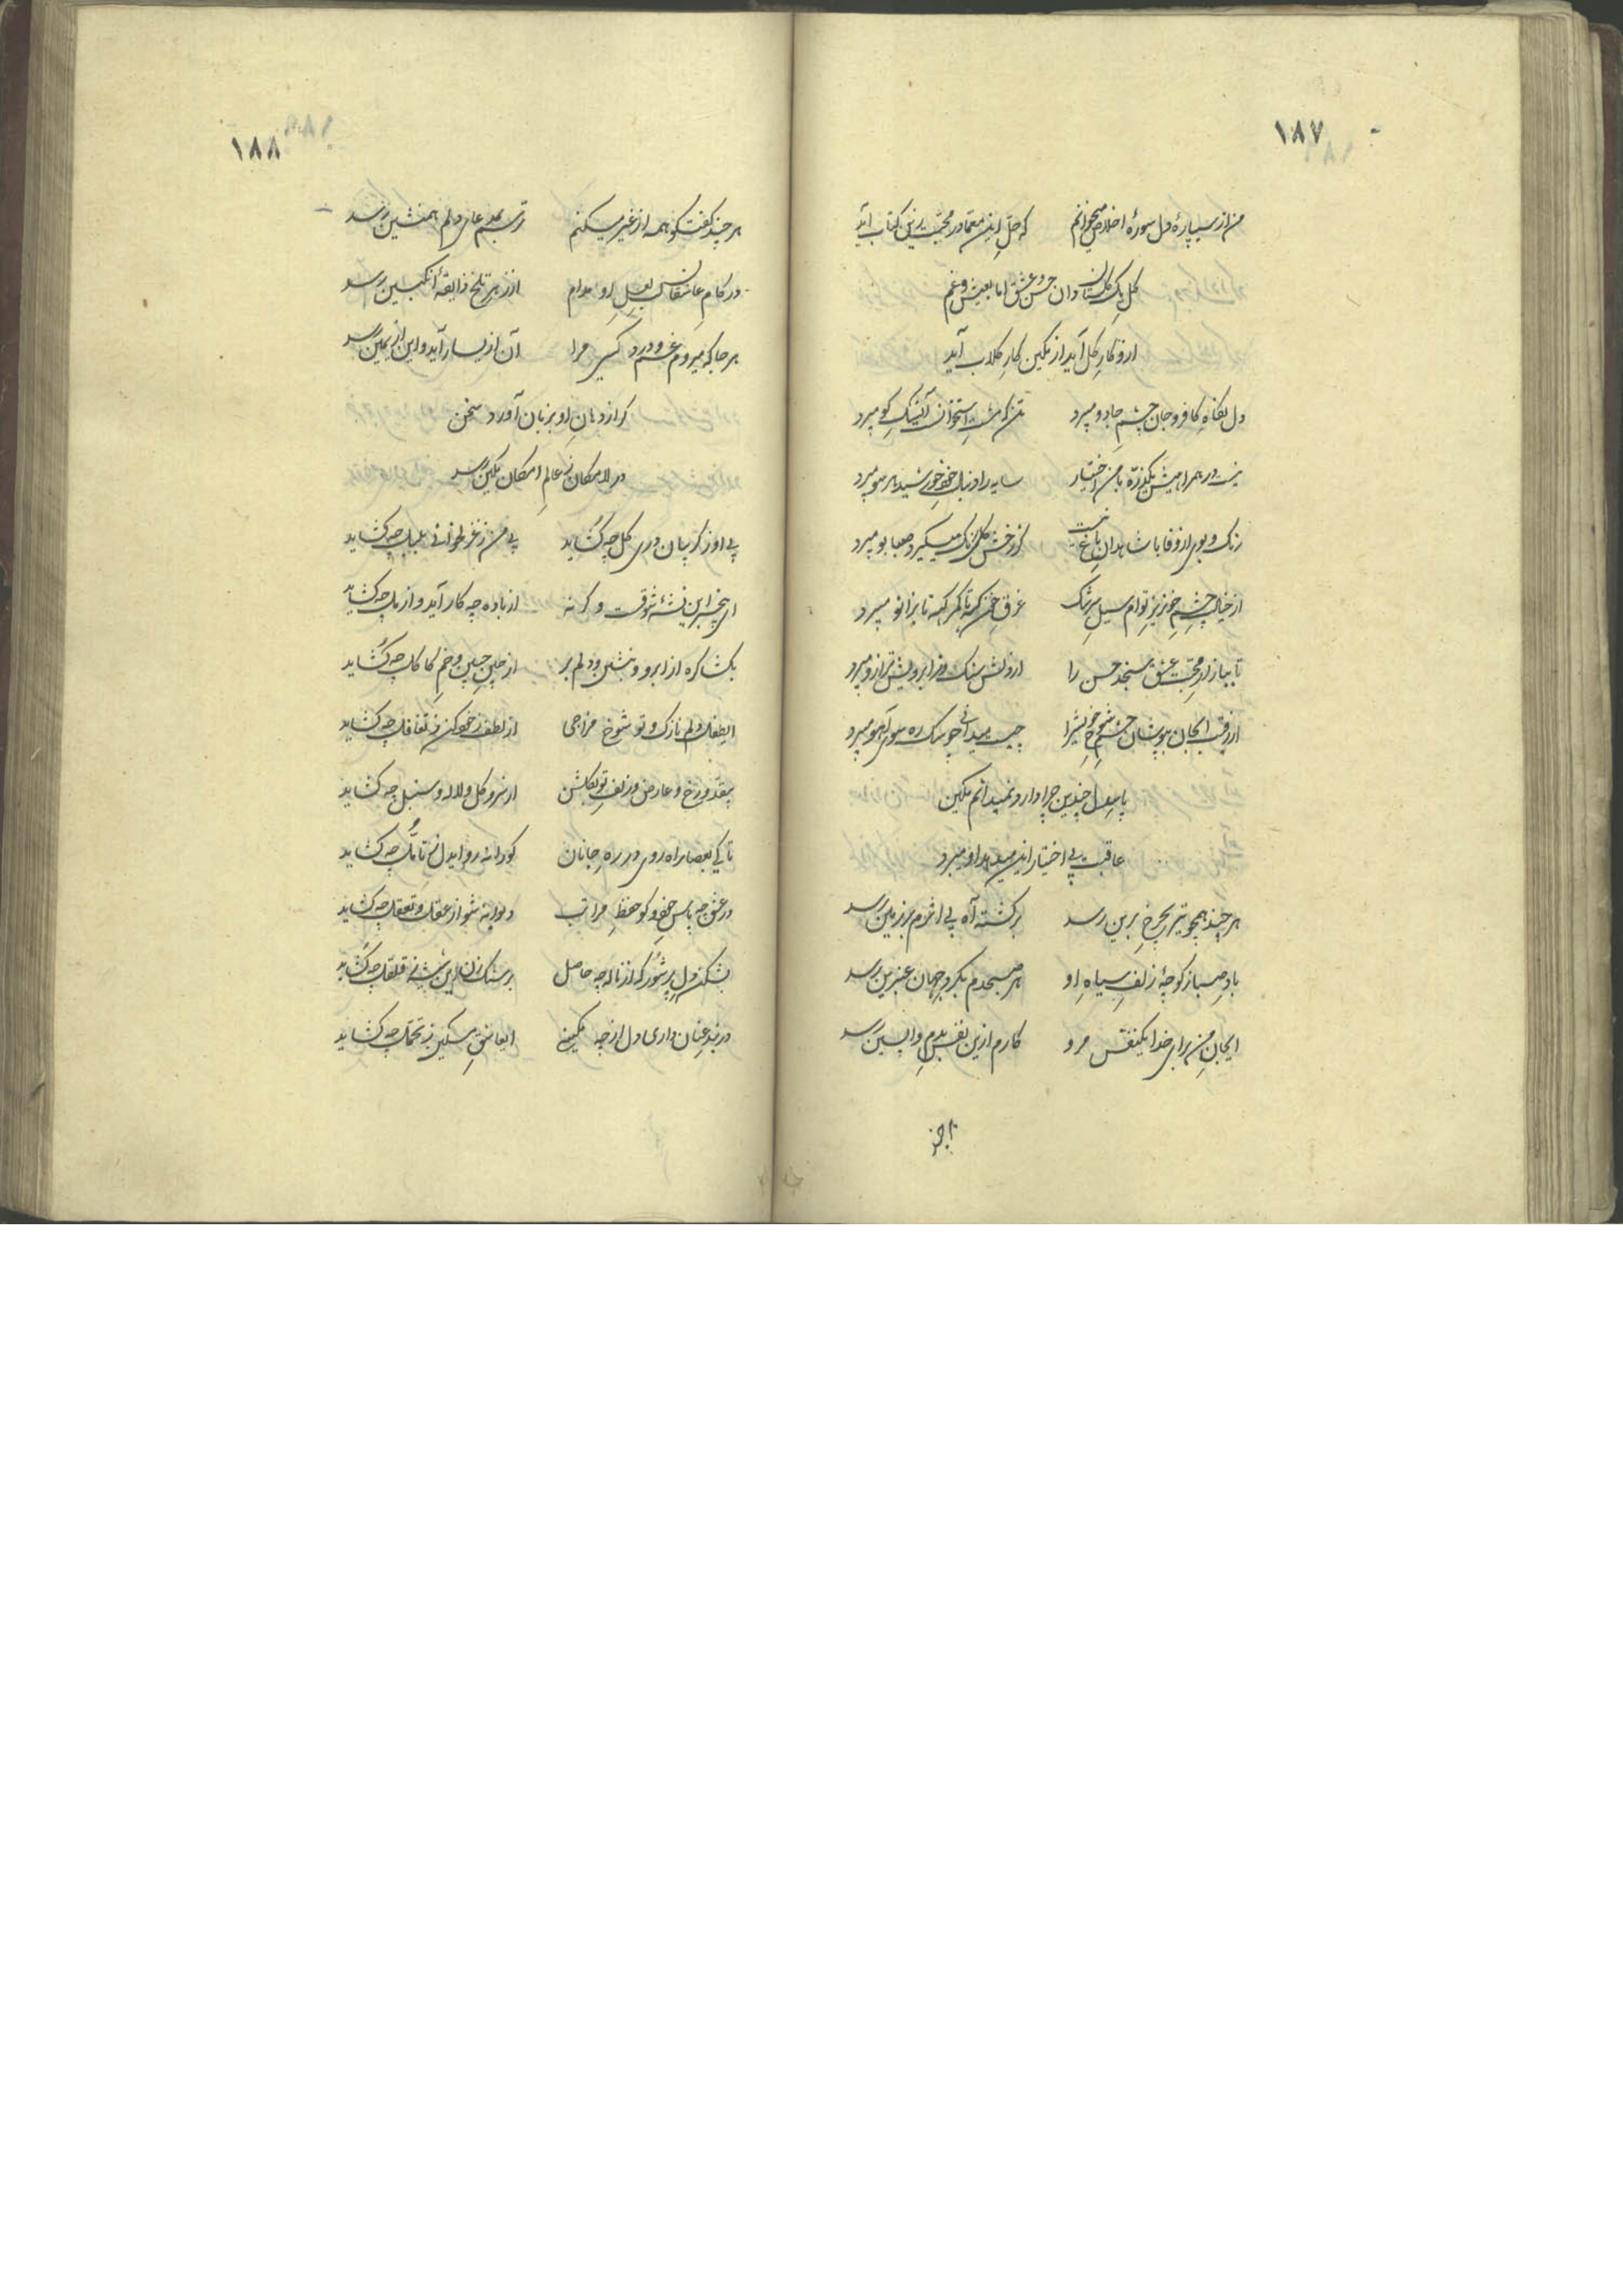 ۱۸۷
من از سیپارهٔ دل سورهٔ اخلاص میخوانم که حلِ این معما در محبت زین کتاب آید
گل یک گلستان دان حسن و عشق اما بعیش و غم
ازو کارِ گل آید از مکین کارِ گلاب آید
دل نگاهِ کافر و جان چشمِ جادو میبرد
نیست در همراهیش یکذره با من اختیار سایه را دنبالِ خود خورشید هر سو میبرد
رنگ و بوی از وفا با شاهدانِ باغ نیست گر رخش گل رنگ میگیرد صبا بو میبرد
از خیالِ چشمِ خونریزِ توام سیلِ سرشک غرقِ خون گه تا کمر گه تا بزانو میبرد
تا ببازارِ محبت عشق سنجد حسن را از دلش سنگ و ز ابرویش ترازو میبرد
از رقیب ایجان بپوشان چشمِ شوخِ خویشرا چیست میدانی چو سگ ره سوی آهو میبرد
با من دل چندین چرا دارد نمیدانم مکین
عاقبت بی اختیار این میدهد او میبرد
هر چند همچو تیر بچرخِ برین رسد برگشته آه بی اثرم بر زمین رسد
بادِ صبا ز کوچهٔ زلفِ سیاهِ او هر صبحدم بگردِ جهان عنبرین رسد
ایجانِ من برای خدا یکنفس مرو کارم ازین نفس بدمِ واپسین رسد
۱۸۸
هر چند گفت گو همه از غیر میکنم
در کامِ عاشقان لبِ لعلِ او مدام از زهر تلخ ذایقهٔ انگبین رسد
هر جا که میروم غم و درد کسی مرا آن از یسار آید و این از یمین رسد
گر از دهانِ او بزبان آورد سخن
در لامکان ز عالمِ امکان مکین رسد
بی او ز گریبان دری گل چه گشاید بی من ز غزلخوانی بلبل چه گشاید
ای بیخبر این نشئهٔ شوقست و گر نه از باده چه کار آید و از مل چه گشاید
بگشا گره از ابرو و بنشین و دلم بر از چینِ جبین و خمِ کاکل چه گشاید
ای طفل دلم نازک و تو شوخ مزاجی از لطف سخن کن ز تغافل چه گشاید
بیقد و رخ و عارض و زلفِ تو بگلشن از سرو گل و لاله و سنبل چه گشاید
تا کی بعصا راه روی در رهِ جانان کورانه رو ایدل ز تأمل چه گشاید
در عشق چه پاسِ خود و کو حفظِ مراتب دیوانه شو از عقل و تعقل چه گشاید
بشکن دلِ پر شور که از ناله چه حاصل بر سنگ زن این شیشه ز قلقل چه گشاید
در بند عنان داری دل از چه مکینی ایعاشقِ مسکین ز تحمل چه گشاید